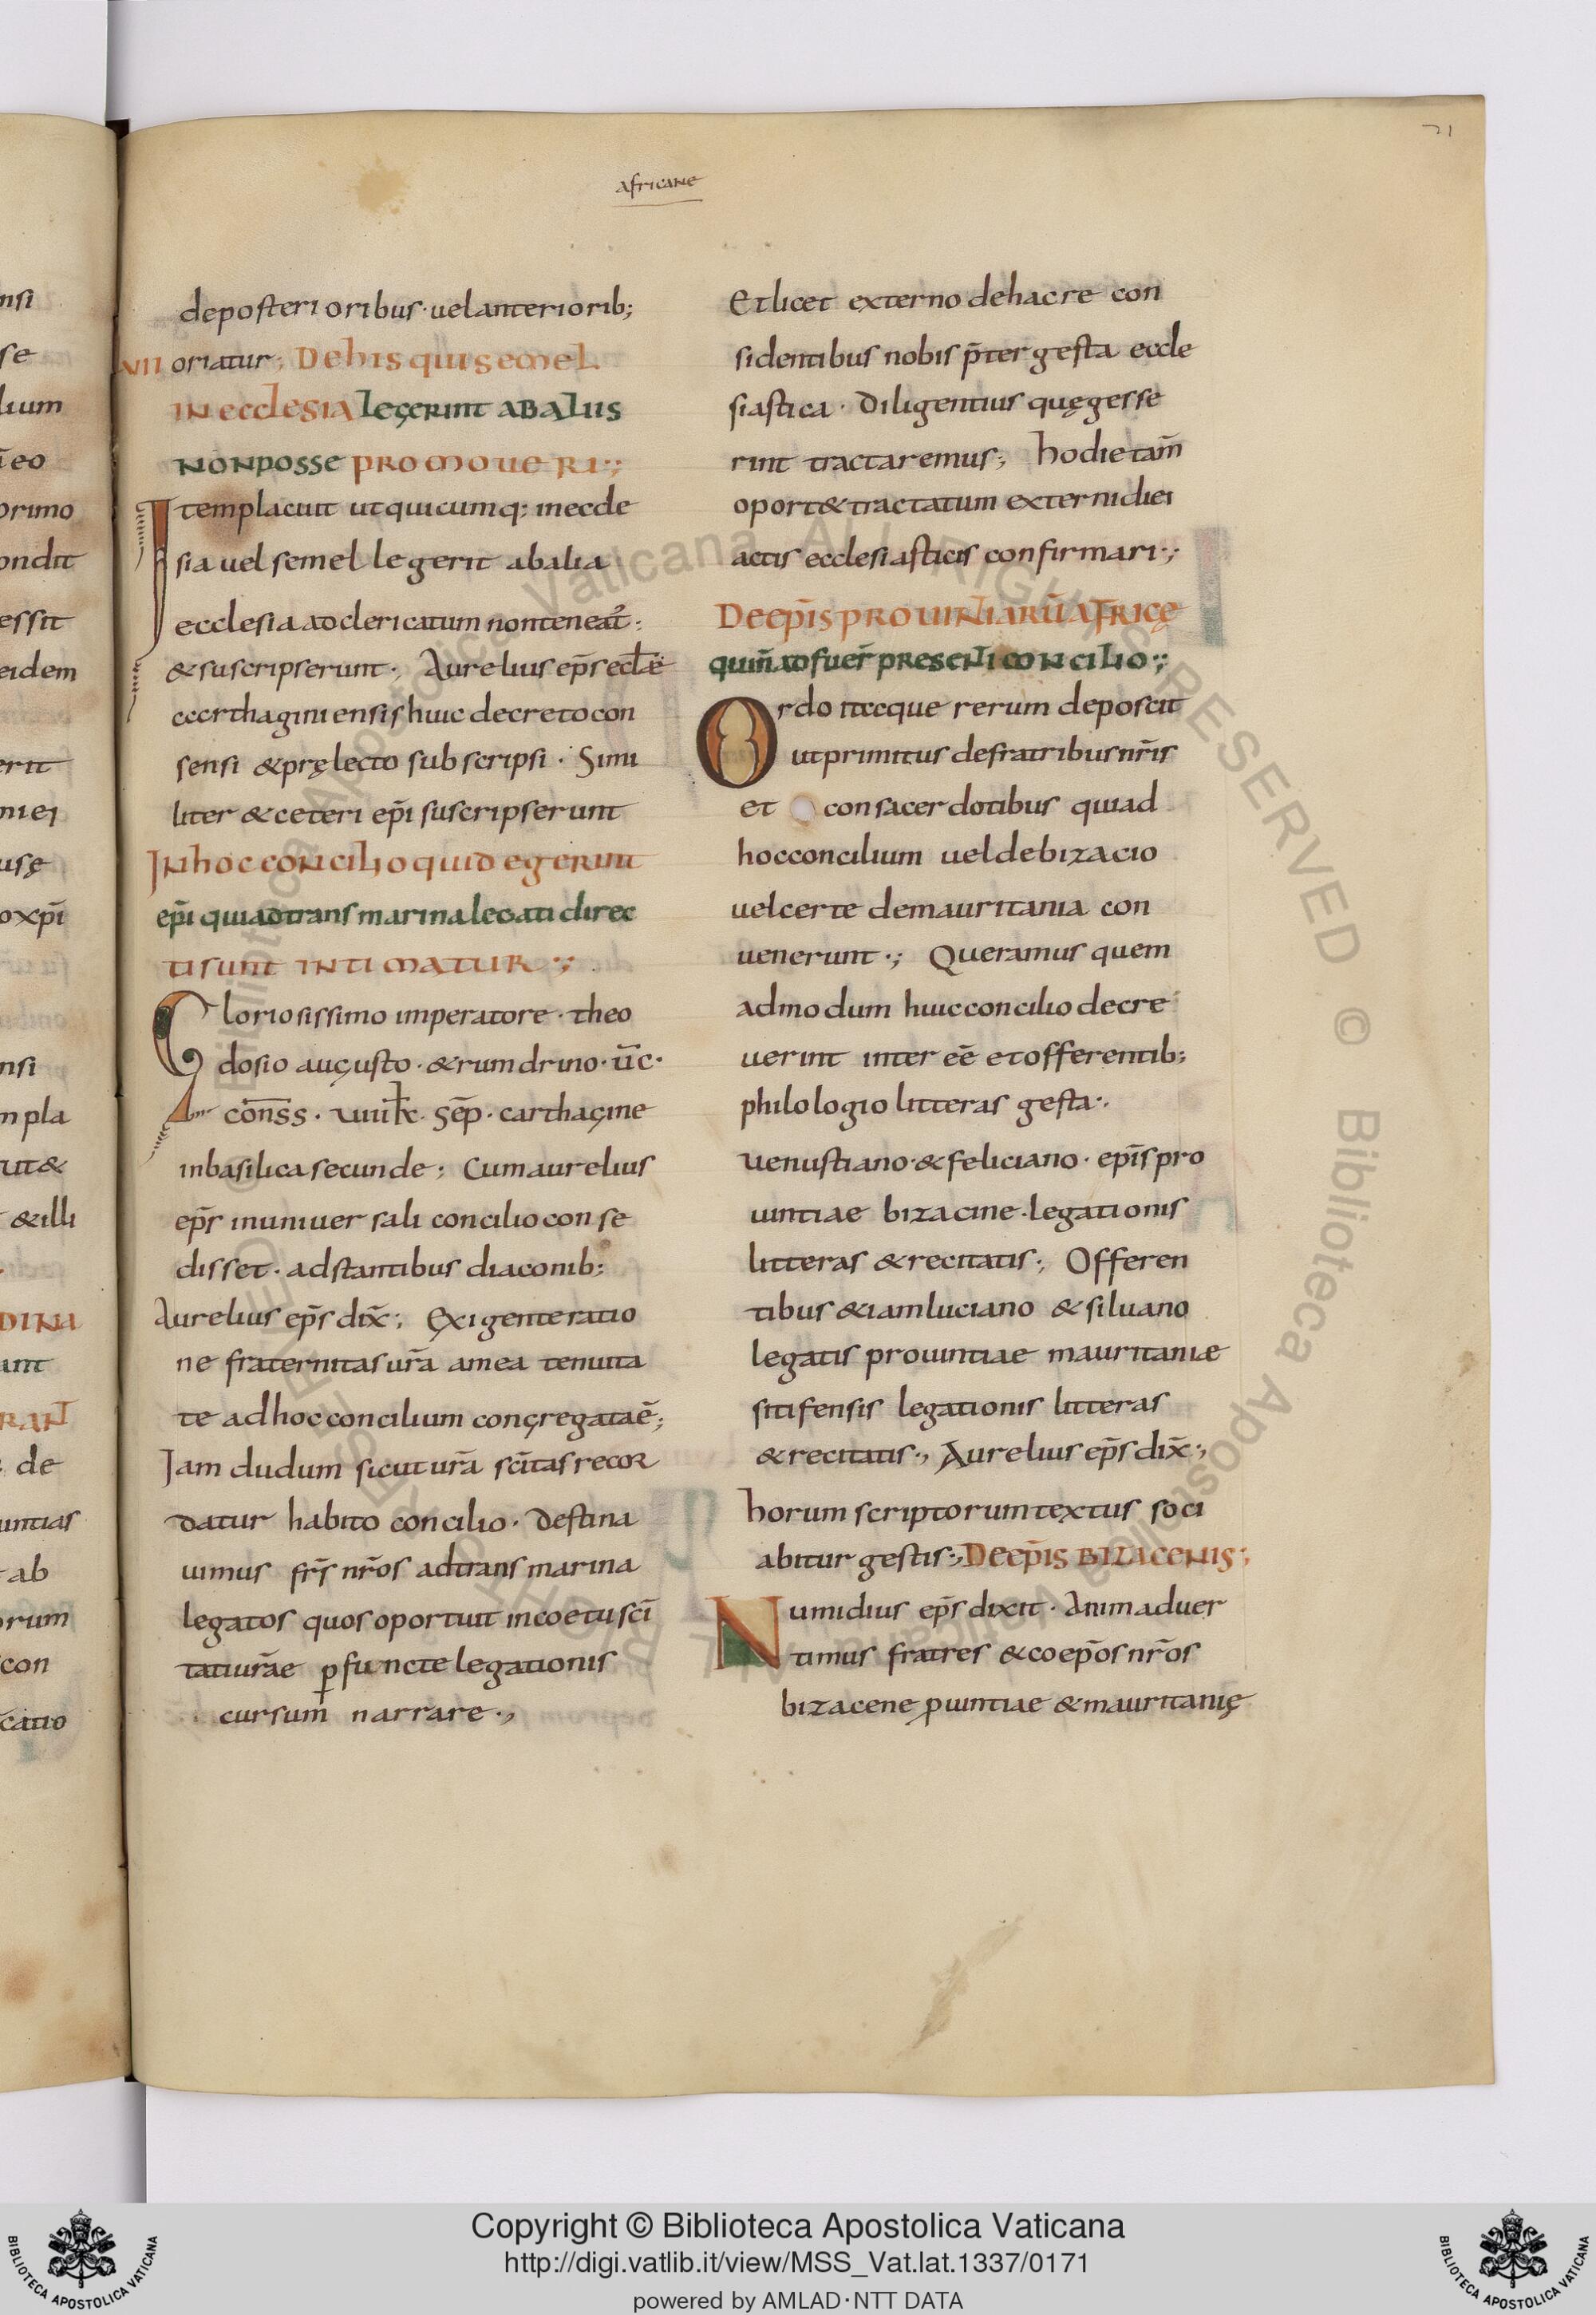 71
africane
deposterioribus · uel anteriorib;
VII oriatur; De his qui semel
in ecclesia legerint ab aliis
non posse promoueri·;
Item placuit ut quicumq: in eccle
sia uel semel legerit ab alia
ecclesia ad clericatum non teneat̄:
& suscripserunt· Aurelius ep̄s eclǣ
carthaginiensis huic decreto con
sensi & pręlecto subscripsi · Simi
liter & ceteri ep̄i suscripserunt
In hoc concilio quid egerint
ep̄i qui ad transmarina legati direc
ti sunt intimatur·;
Gloriosissimo imperatore · theo
dosio augusto · & rumdrino · ūc·
cōnss · uiiii kł · sēp · carthagine
in basilica secunde; Cum aurelius
ep̄s in uniuersali concilio conse
disset · adstantibus diaconib:
Aurelius ep̄s dix̄; Exigente ratio
ne fraternitas ur̄a a mea tenuita
te ad hoc concilium congregata ē;
Iam dudum sicut ur̄a sc̄itas recor
datur habito concilio · destina
uimus fr̄s nr̄os ad transmarina
legatos quos oportuit in coetu sc̄i
tati ur̄ae ꝑfuncte legationis
cursum narrare·,
Et licet externo de hac re con
sidentibus nobis p̄ter gesta eccle
siastica · diligentius quę gesse
rint tractaremus; hodie tam̄
oport& tractatum externi diei
actis ecclesiasticis confirmari·;
De ep̄is prouintiarū africę
qui n̄ ad fuer̄ presenti concilio·;
Ordo itaque rerum deposcit
ut primitus de fratribus nr̄is
et consacerdotibus qui ad
hoc concilium uel de bizacio
uel certe de mauritania con
uenerunt·; Queramus quem
admodum huic concilio decre
uerint interee̅ et offerentib;
philologio litteras gesta·.
uenustiano · & feliciano · ep̄is pro
uintiae bizacine · legationis
litteras & recitatis; Offeren
tibus & iam luciano & siluano
legatis prouintiae mauritaniæ
sitifensis legationis litteras
& recitatis·, Aurelius ep̄s dix̄·,
horum scriptorum textus soci
abitur gestis·, De ep̄is bizacenis·;
Numidius ep̄s dixit · Animaduer
timus fratres & coep̄os nr̄os
bizacene ꝓuintiae & mauritanię
Copyright © Biblioteca Apostolica Vaticana
http://digi.vatlib.it/view/MSS_Vat.lat.1337/0171
powered by AMLAD·NTT DATA
BIBLIOTECA APOSTOLICA VATICANA
BIBLIOTECA APOSTOLICA VATICANA